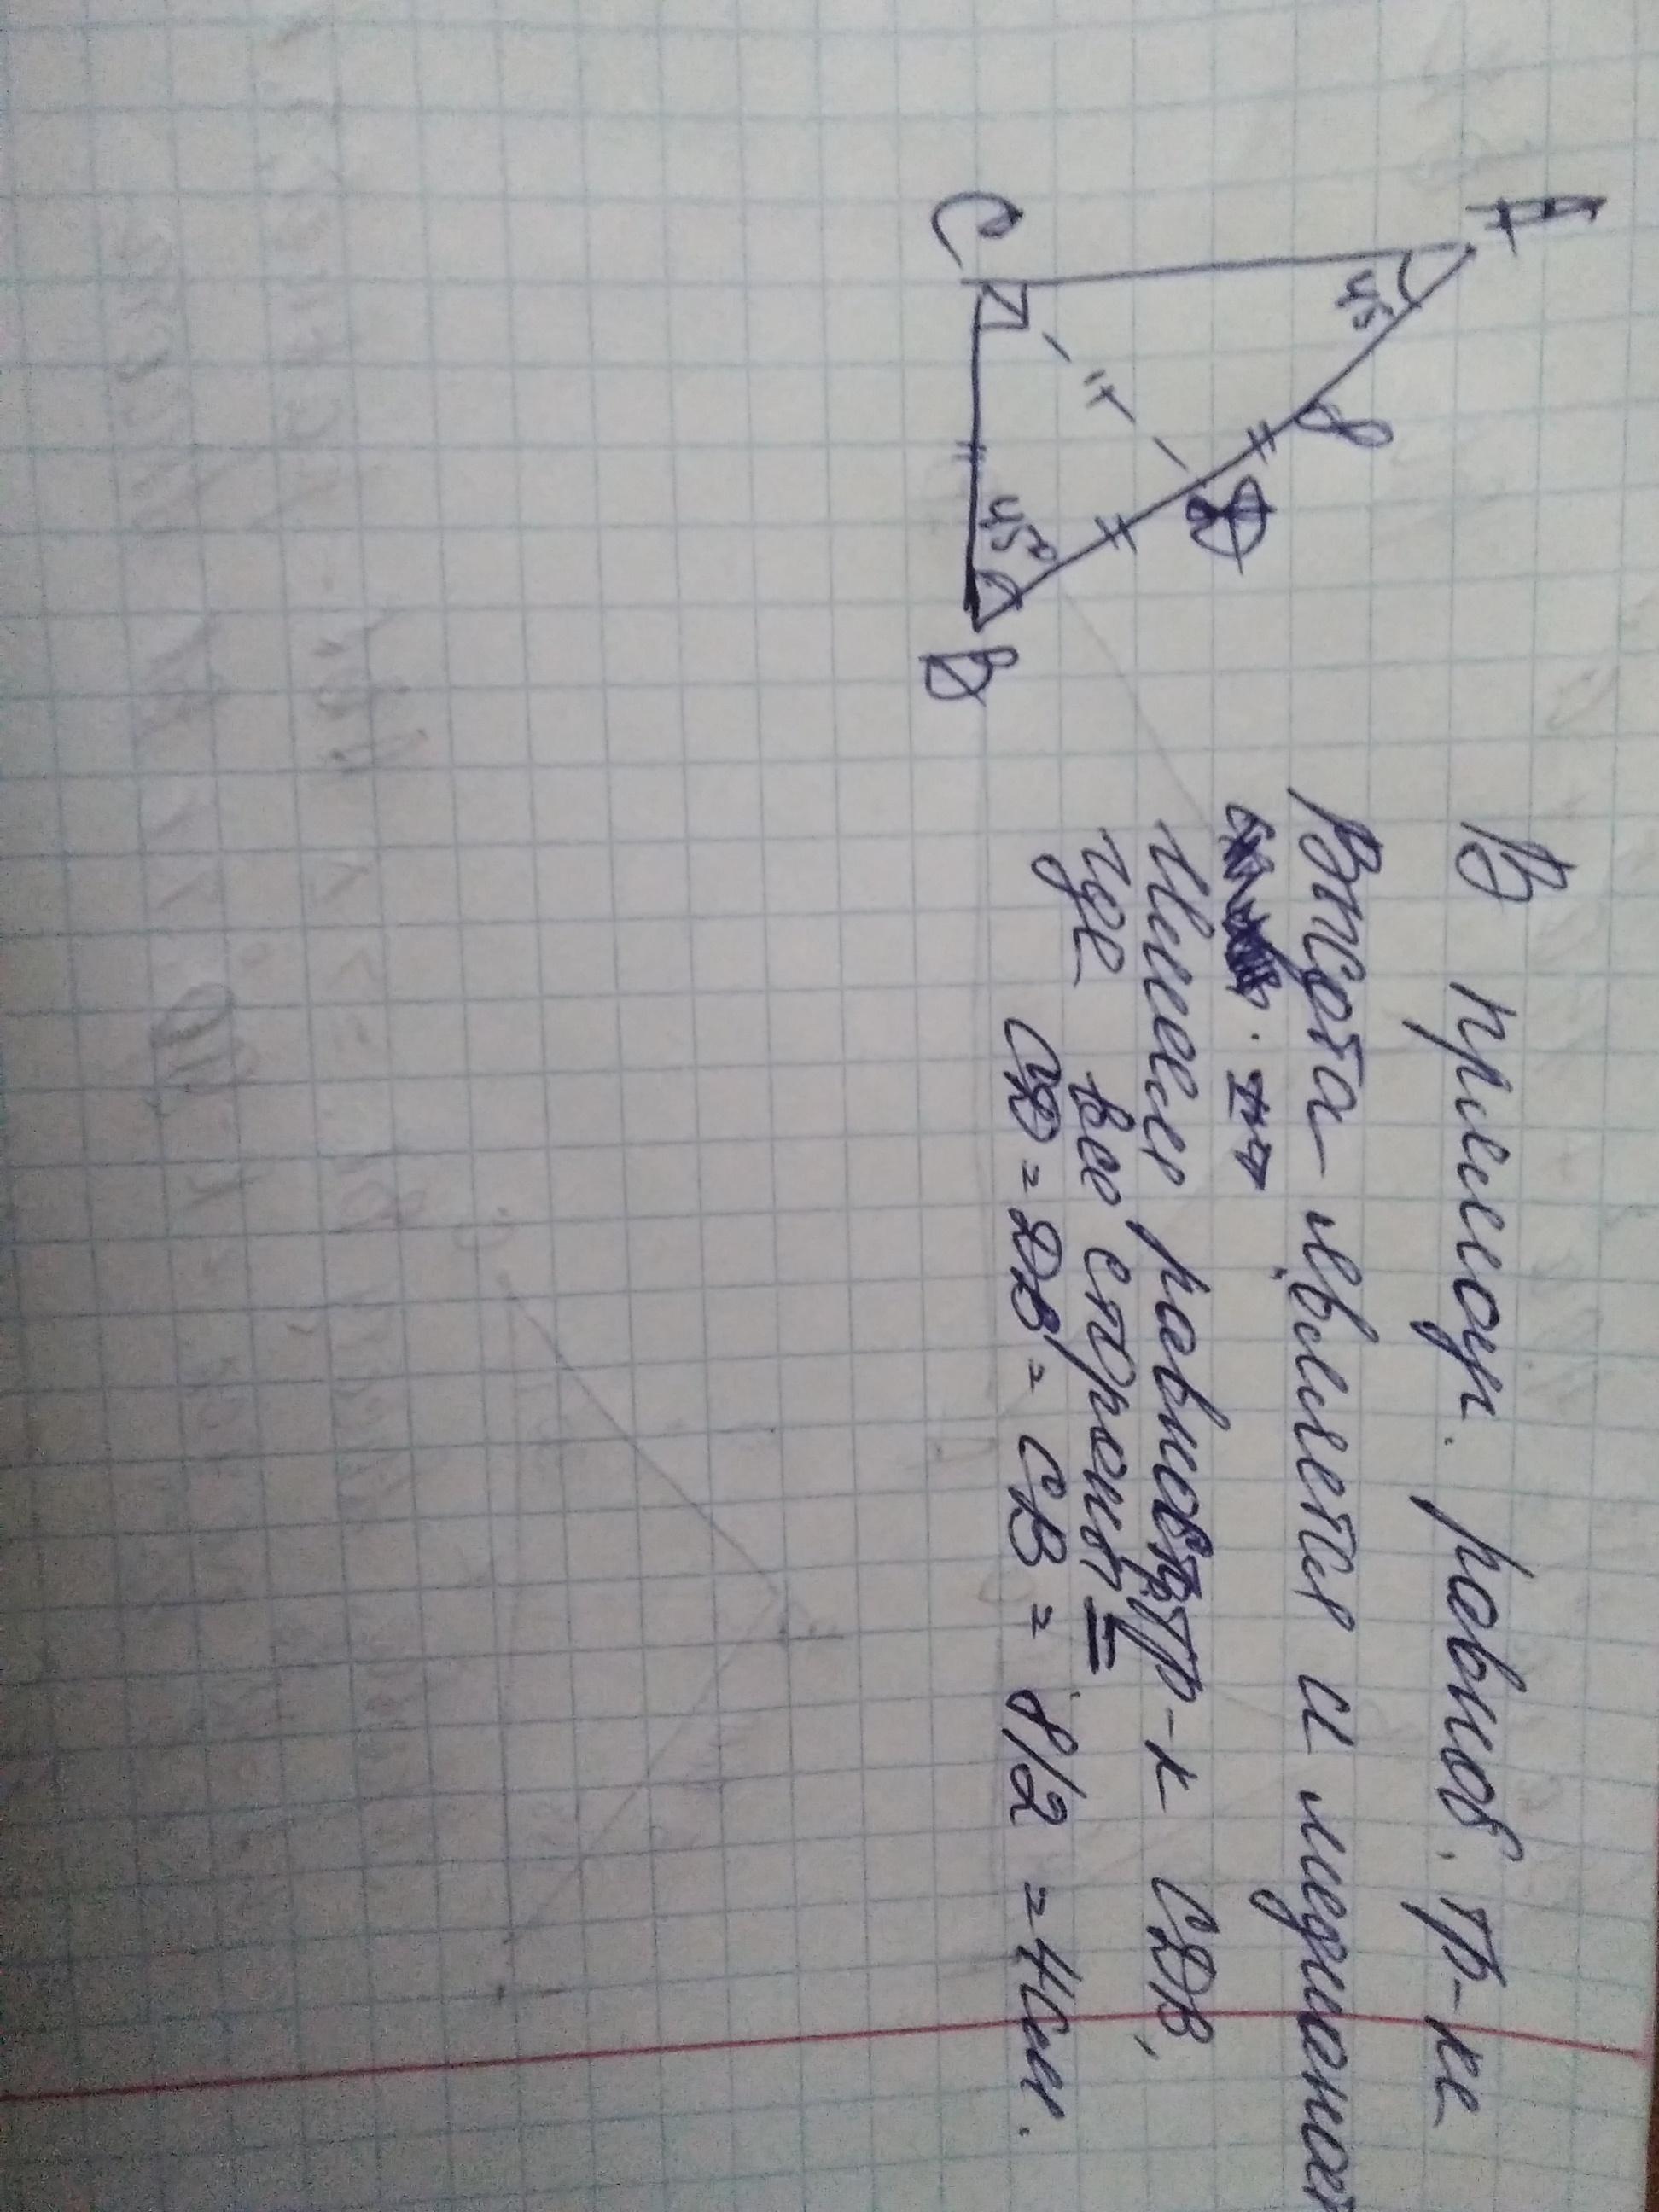 A
45°
8
D
4
C
45°
B
В прямоуг. равноб. тр-ке
Высота является и медианой
Имеем равност. тр-к CDB,
где все стороны =
CD = DB = CB = 8/2 = 4см.